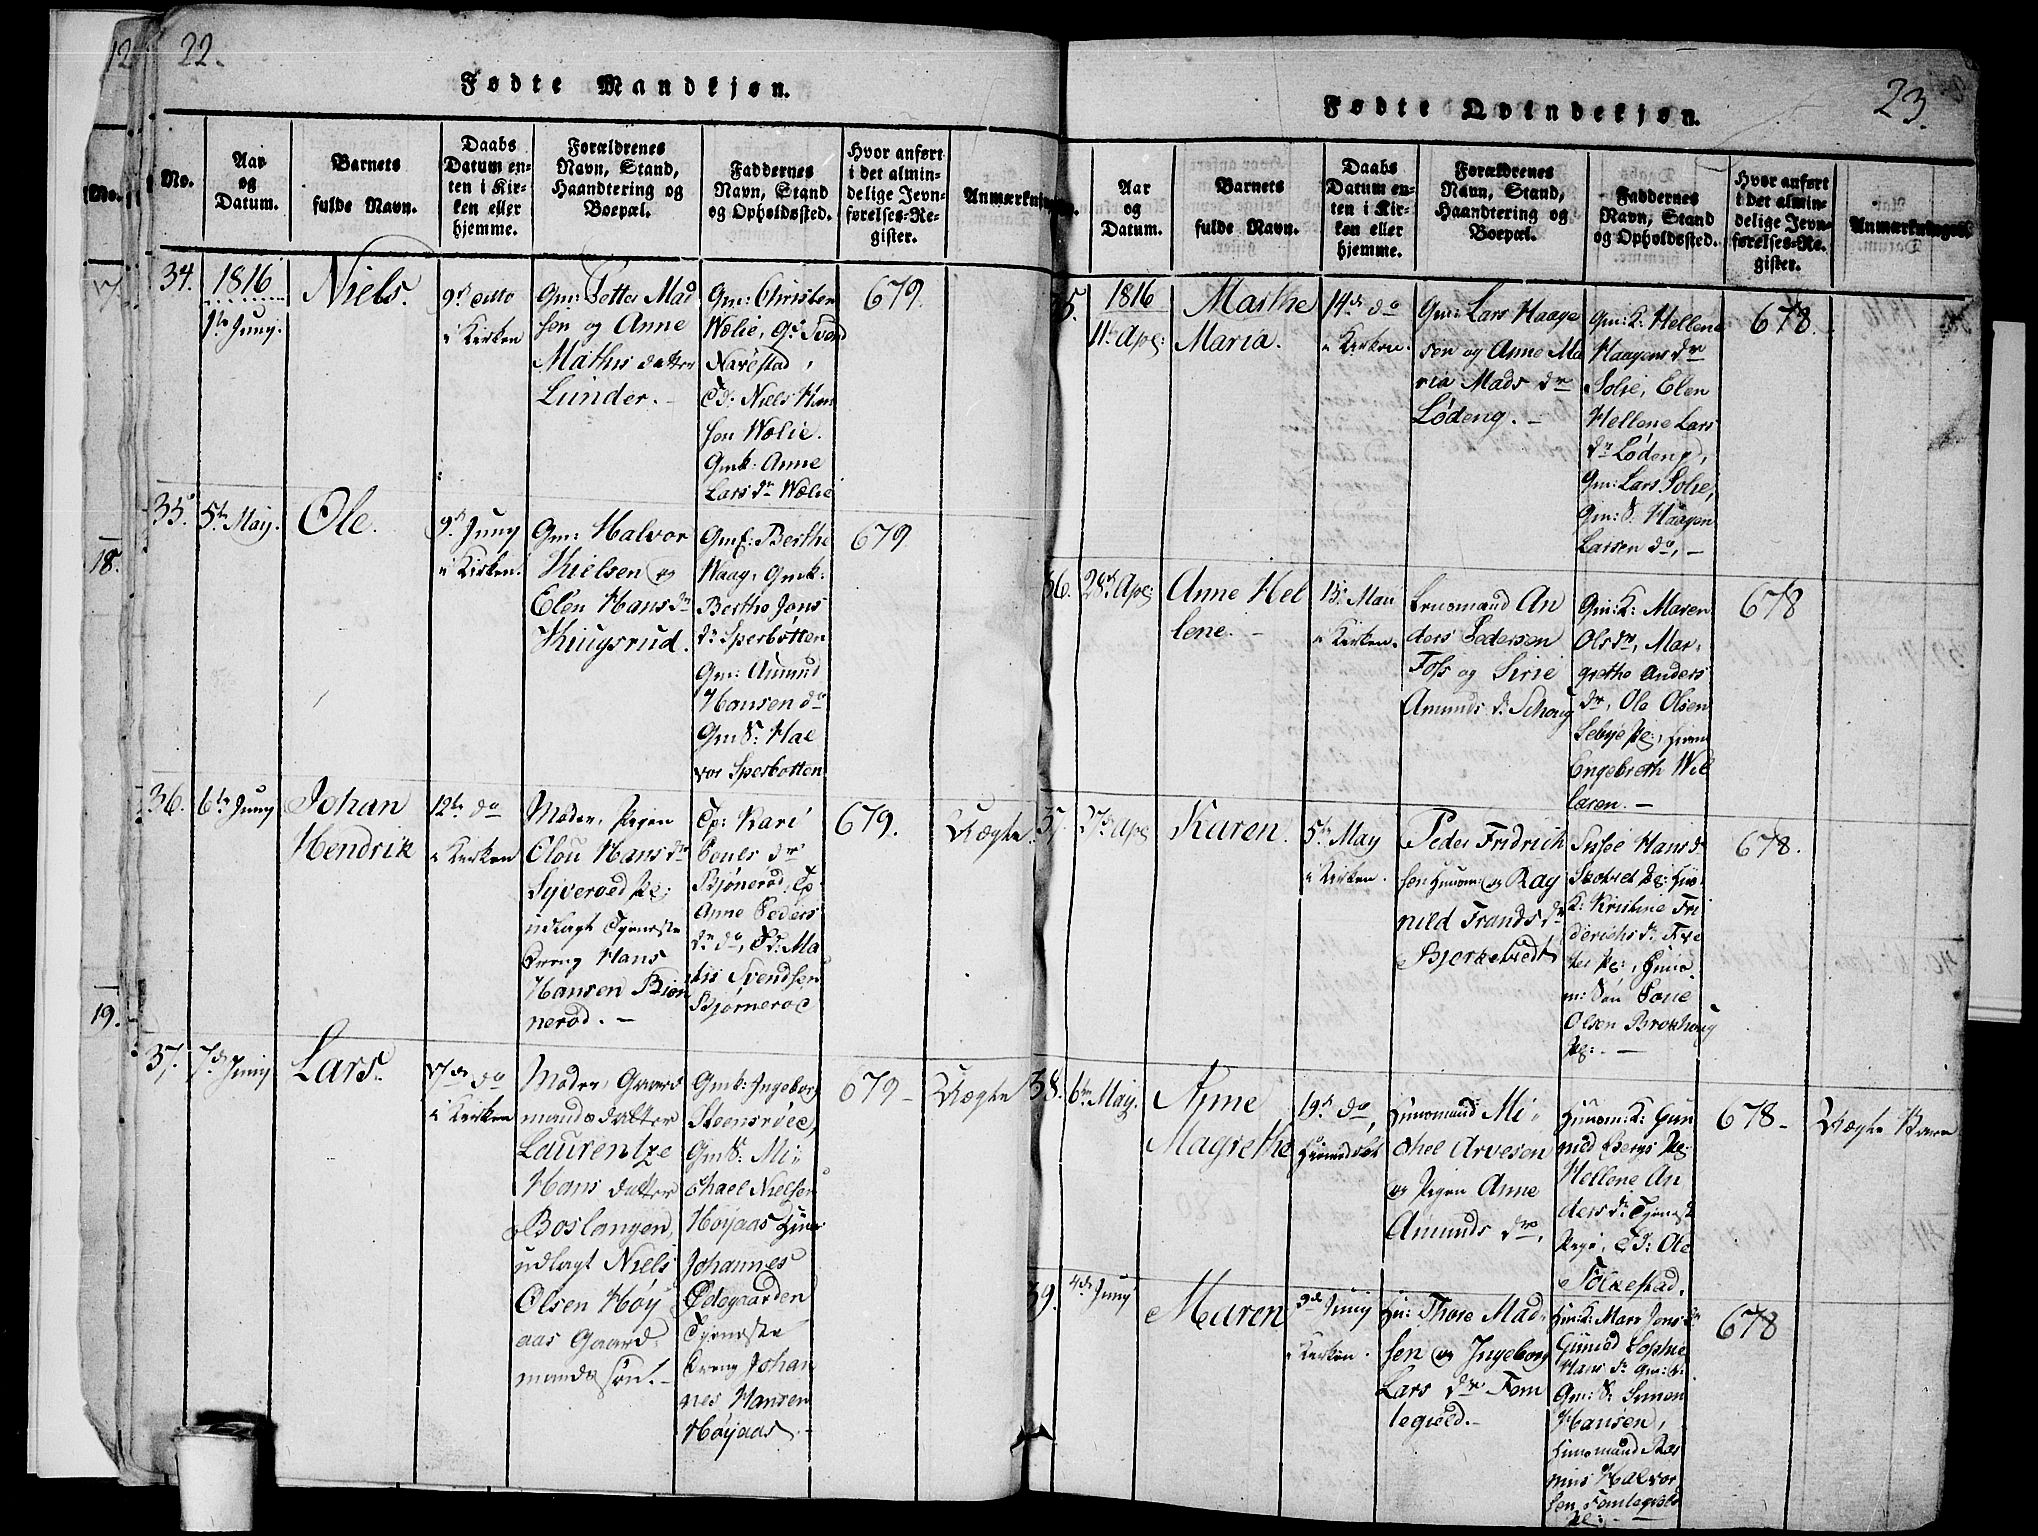 22.
Fødte Mandkjøn.
No.
Aar
og
Datum.
Barnets
fulde Navn.
Daabs
Datum en-
ten i Kir-
ken eller
hjemme.
Forældrenes
Navn, Stand,
Haandtering og
Boepæl.
Faddernes
Navn, Stand
og Opholdssted.
Hvor anført
i det almin-
delige Jevn-
førelses-Re-
gister.
Anmærkninger.
34.
1816
1te Juny.
Niels.
9d ditto
i Kirken
Gm: Petter Mad
sen og Anne
Mathis datter
Lunder. -
Gm: Christen
Wølie,
Navestad,
Niels Han
sen Wølie.
Gmk: Anne
Lars dr Wølie
679.
35.
5te May.
Ole.
9d Juny
i Kirken.
Gm: Halvor
Nielsen og
Elen Hans dr
Kiugsrud.
Gmk: Berthe
Waag, Gmk:
Berthe Jons
dr Sperbotten
Gm: Amund
Hansen do
GmS: Hal
vor Sperbotten
679
36.
6te Juny
Johan
Hendrik
12te do
i Kirken
Moder, Pigen
Elou Hans dr
Syverød
udlagt Tjeneste
Dreng Hans
Hansen Biør
nerød. -
Kari
Pouls dr
Bjønerød,
Anne Peders
dr do, Ma
Svendsen
Bjørnerød
679.
Uægte.
37.
7de Juny
Lars.
17de do
i Kirken
Moder, Gaard
mands datter
Laurentze
Hans datter
Boslangen,
udlagt Niels
Olsen Høy
aas Gaard
mands søn. -
Gmk: Ingeborg
Steensrød,
GmS: Mi
chael Nielsen
Høyaas
Johannes
Ødegaarden
Tjeneste
Dreng Johan
nes Hansen
Høyaas
679 -
Uægte
23.
Fødte Qvindekjøn.
Aar
og
Datum.
Barnets
fulde Navn.
Daabs
Datum en-
ten i Kir-
ken eller
hjemme.
Forældrenes
Navn, Stand,
Haandtering og
Boepæl.
Faddernes
Navn, Stand
og Opholdssted.
Hvor anført
i det almin-
delige Jevn-
førelses-Re-
gister.
Anmærkninger.
35.
1816
11te Apr:
Marthe
Maria.
14de do
i Kirken.
Gm: Lars Haage
sen og Anne Ma
ria Mads dr
Lødeng. -
Gm: K: Hellene
Haagens dr
Solie, Elen
Hellene Lars
dr Lødeng,
Gm: Lars Solie,
Gm: S: Haagen
Larsen do, -
678.
36.
28de Apr:
Anne Hel
lene. -
i Kirken.
An
ders Pedersen
Foss og Sirie
Amunds dr Schoug
Gm: K: Maren
Ols dr, Mar-
grethe Anders
dr, Ole Olsen
Engebreth Wil
larsen. -
678
37.
Karen.
5te May
i Kirken.
Peder Fridrich
sen Huusm: og Rag
nild Frands dr
Bjerketvedt
Hans dr
K: Kristine Fri
derichs dr
Olsen Brokhoug
678.
38.
6te May.
Anne
Magrethe
19de do,
Huusmand Mi
chel Arvesen
og Pigen Anne
Amunds dr,
Huusm: K: Gun
nild Bergs
Hellene An
ders dr Tjeneste
Pige, Ole
Tockestad.
678 -
Uægte Barn
39.
4de Juny
Maren
9de Juny
i Kirken.
Hu: Thore Mad
sen og Ingeborg
Lars dr Fom
legield. -
Hm: K: Mari Jons dr
Sophie
Hans dr
Gm: S: Simen
Hansen,
Huusmand Ras
mus Halvor
sen Fomlegield
678
18.
19.